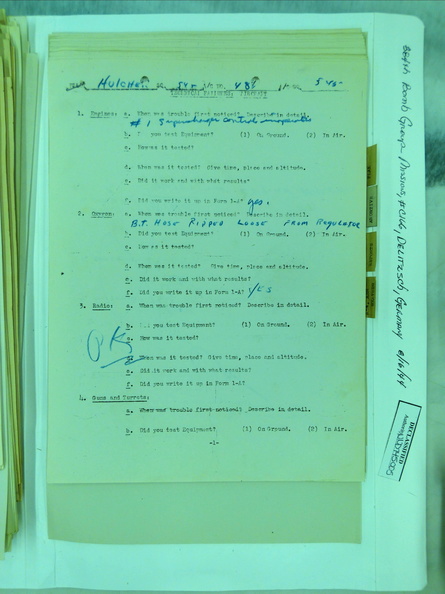 Hulcher
TECHNICAL FAILURES, AIRCRAFT
1. Engines: a. When was trouble first noticed? Describe in detail.
#1 Supercharger control inoperative
b. Did you test Equipment? (1) On Ground. (2) In Air.
c. How was it tested?
d. When was it tested? Give time, place and altitude.
e. Did it work and with what results?
f. Did you write it up in Form 1-A? yes.
2. Oxygen: a. When was trouble first noticed? Describe in detail.
B.T. HOSE RIPPED LOOSE FROM REGULATOR
b. Did you test Equipment? (1) On Ground. (2) In Air.
c. How was it tested?
d. When was it tested? Give time, place and altitude.
e. Did it work and with what results?
f. Did you write it up in Form 1-A? YES
3. Radio: a. When was trouble first noticed? Describe in detail.
b. Did you test Equipment? (1) On Ground. (2) In Air.
OK
c. How was it tested?
d. When was it tested? Give time, place and altitude.
e. Did it work and with what results?
f. Did you write it up in Form 1-A?
4. Guns and Turrets:
a. When was trouble first noticed? Describe in detail.
b. Did you test Equipment? (1) On Ground. (2) In Air.
-1-
384th Bomb Group Missions, Delitzsch, Germany 8/16/44
DECLASSIFIED
Authority